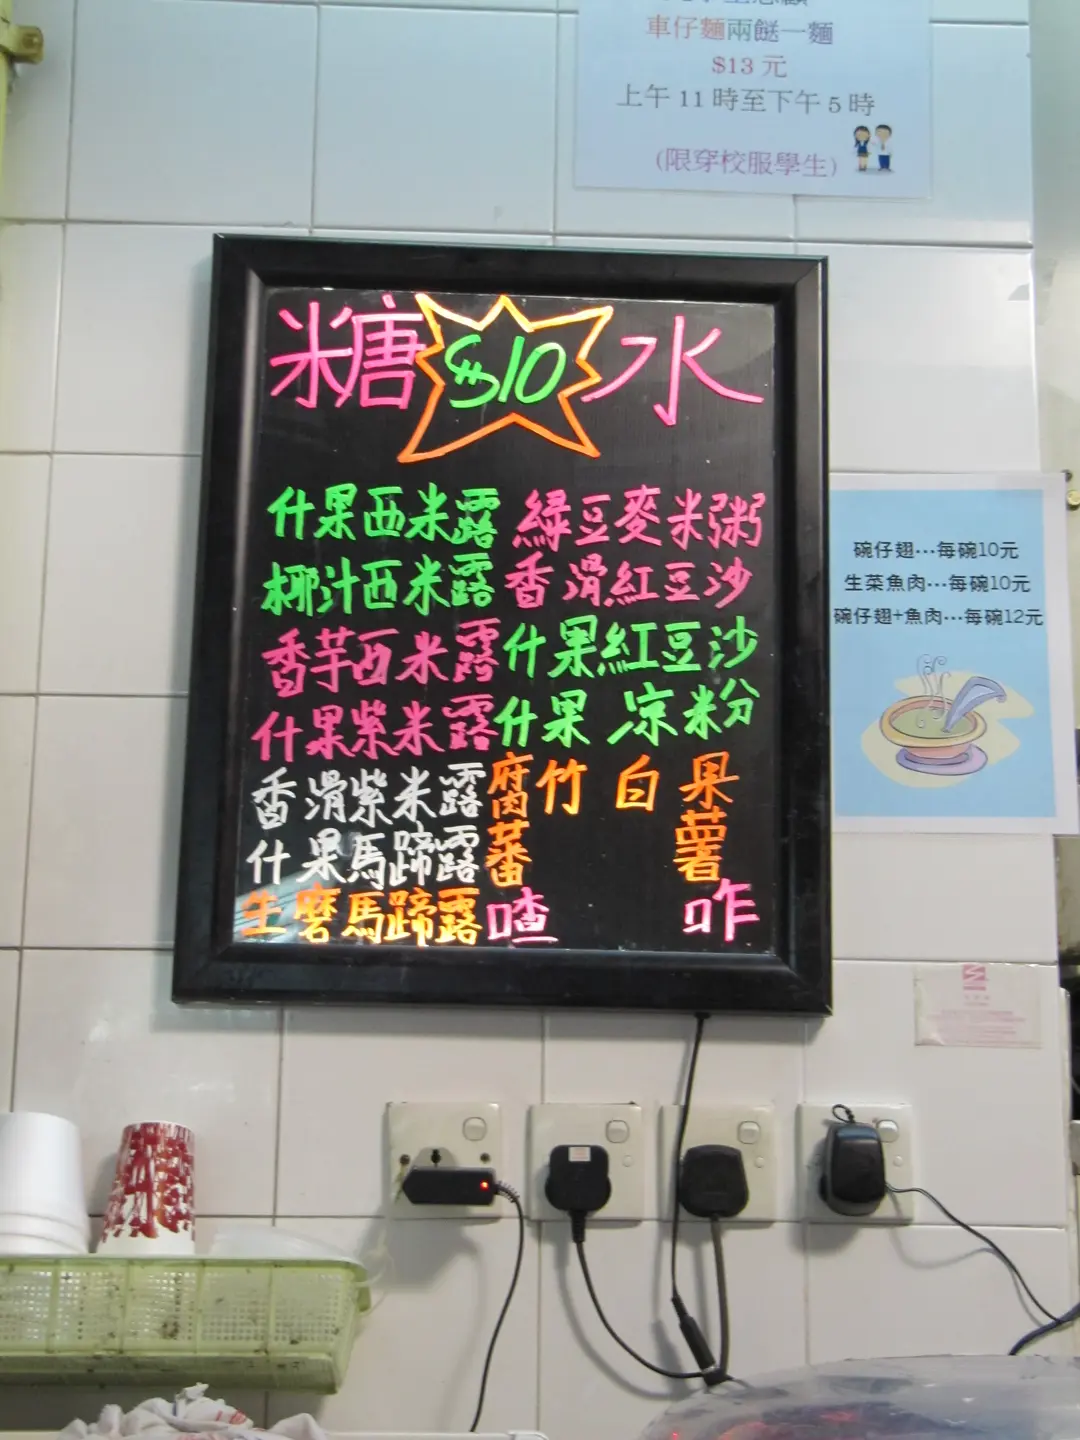 車仔麵兩餸一麵
$13 元
上午 11 時至下午 5 時
(限穿校服學生)
糖 $10 水
什果西米露
椰汁西米露
香芋西米露
什果紫米露
香滑紫米露
什果馬蹄露
生磨馬蹄露
綠豆麥米粥
香滑紅豆沙
什果紅豆沙
什果涼粉
腐竹白果
蕃薯
喳咋
碗仔翅⋯每碗10元
生菜魚肉⋯每碗10元
碗仔翅+魚肉⋯每碗12元